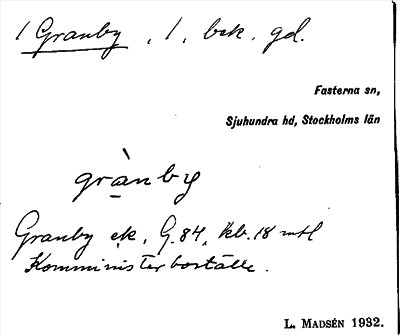 1 Granby, 1, bsk. gd.
Fasterna sn,
Sjuhundra hd, Stockholms län
grànby
Granby ek, G.84, kb.18 mtl
Komministerboställe.
L. MADSÉN 1932.